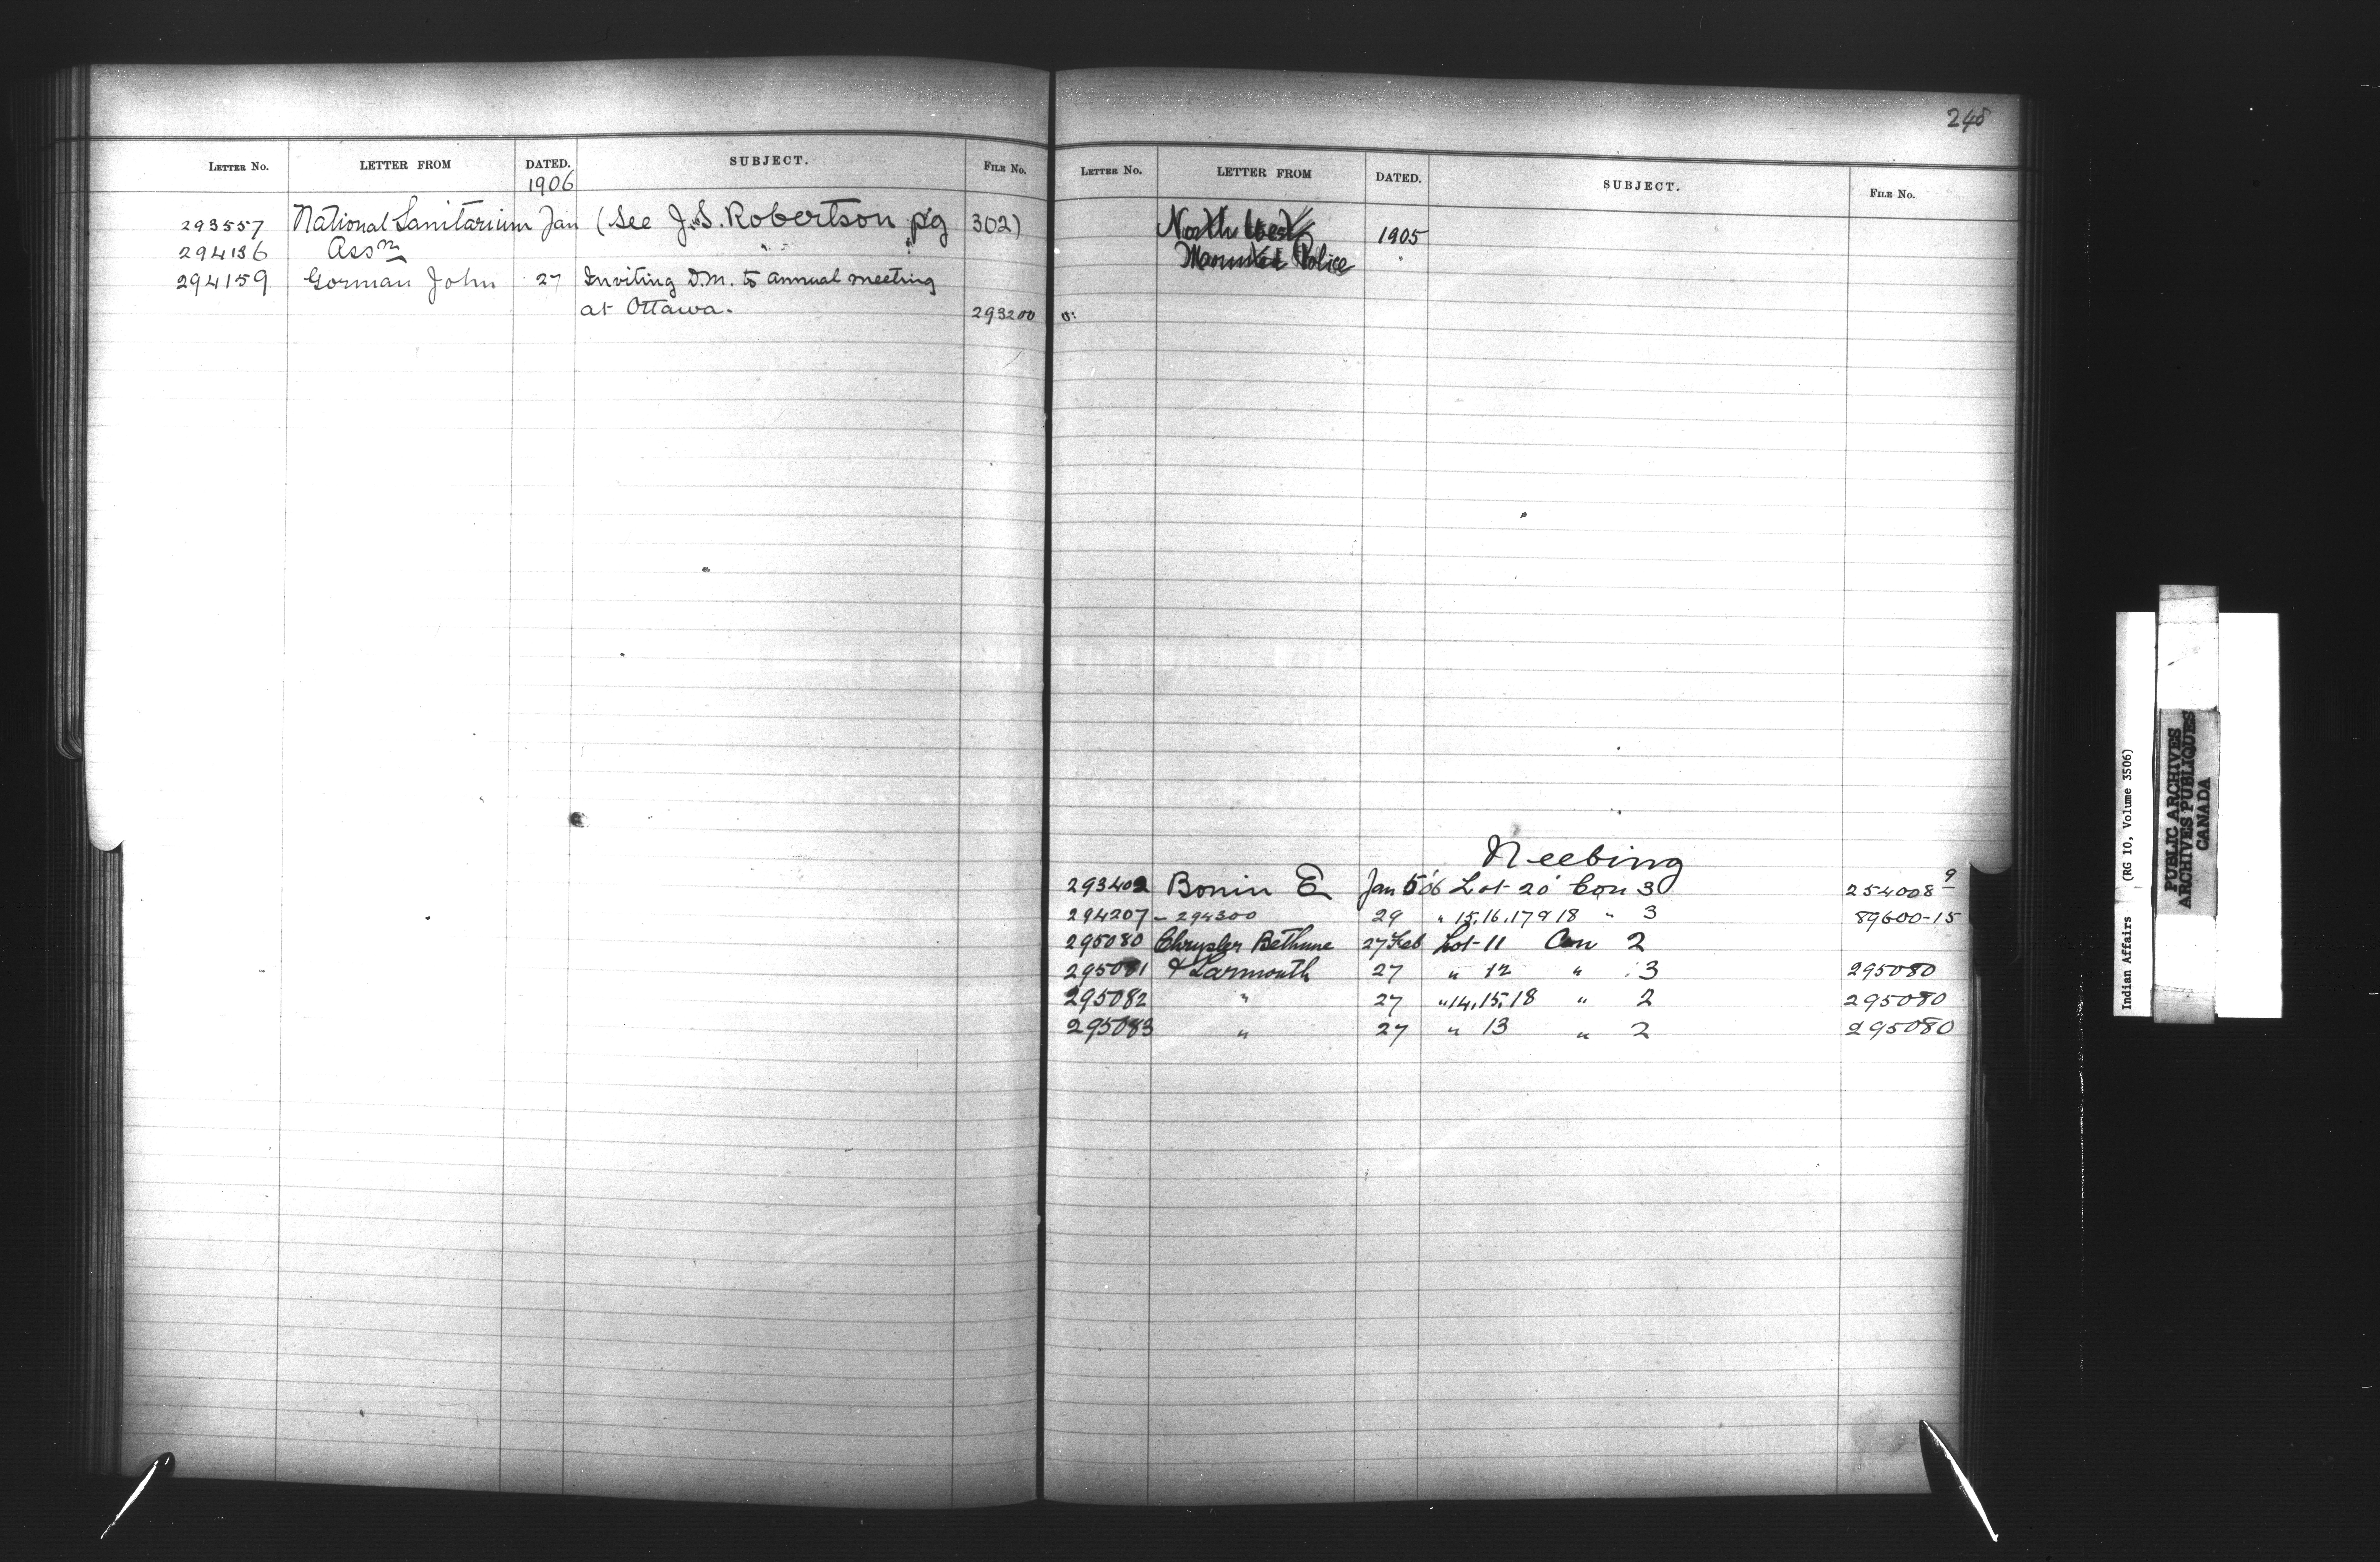 LETTER NO. LETTER FROM DATED. SUBJECT. FILE NO.
1906
293557 National Sanitarium Jan (See J.S. Robertson pg 302)
294136 Assn " "
294159 Gorman John 27 Inviting D.M. to annual meeting
at Ottawa. 293200
248
LETTER NO. LETTER FROM DATED. SUBJECT. FILE NO.
North West 1905
Mounted Police "
Neebing
293402 Bonin E Jan 5 '06 Lot 20 Con 3 254008-9
294207 - 294300 29 " 15, 16, 17 & 18 " 3 89600-15
295080 Chrysler Bethune 27 Feb Lot 11 Con 2
295081 & Larmonth 27 " 12 " 3 295080
295082 " 27 " 14, 15, 18 " 2 295080
295083 " 27 " 13 " 2 295080
Indian Affairs (RG 10, Volume 3506)
PUBLIC ARCHIVES
ARCHIVES PUBLIQUES
CANADA